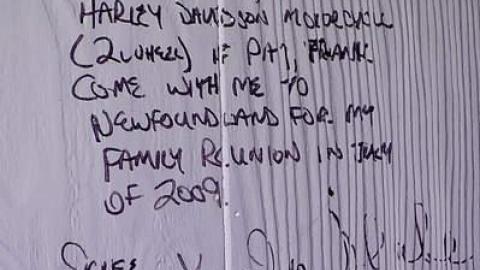 HARLEY DAVIDSON MOTORCYCLE
(2 WHEEL) IF PAT, FRANK
COME WITH ME TO
NEWFOUNDLAND FOR MY
FAMILY REUNION IN JULY
OF 2009.